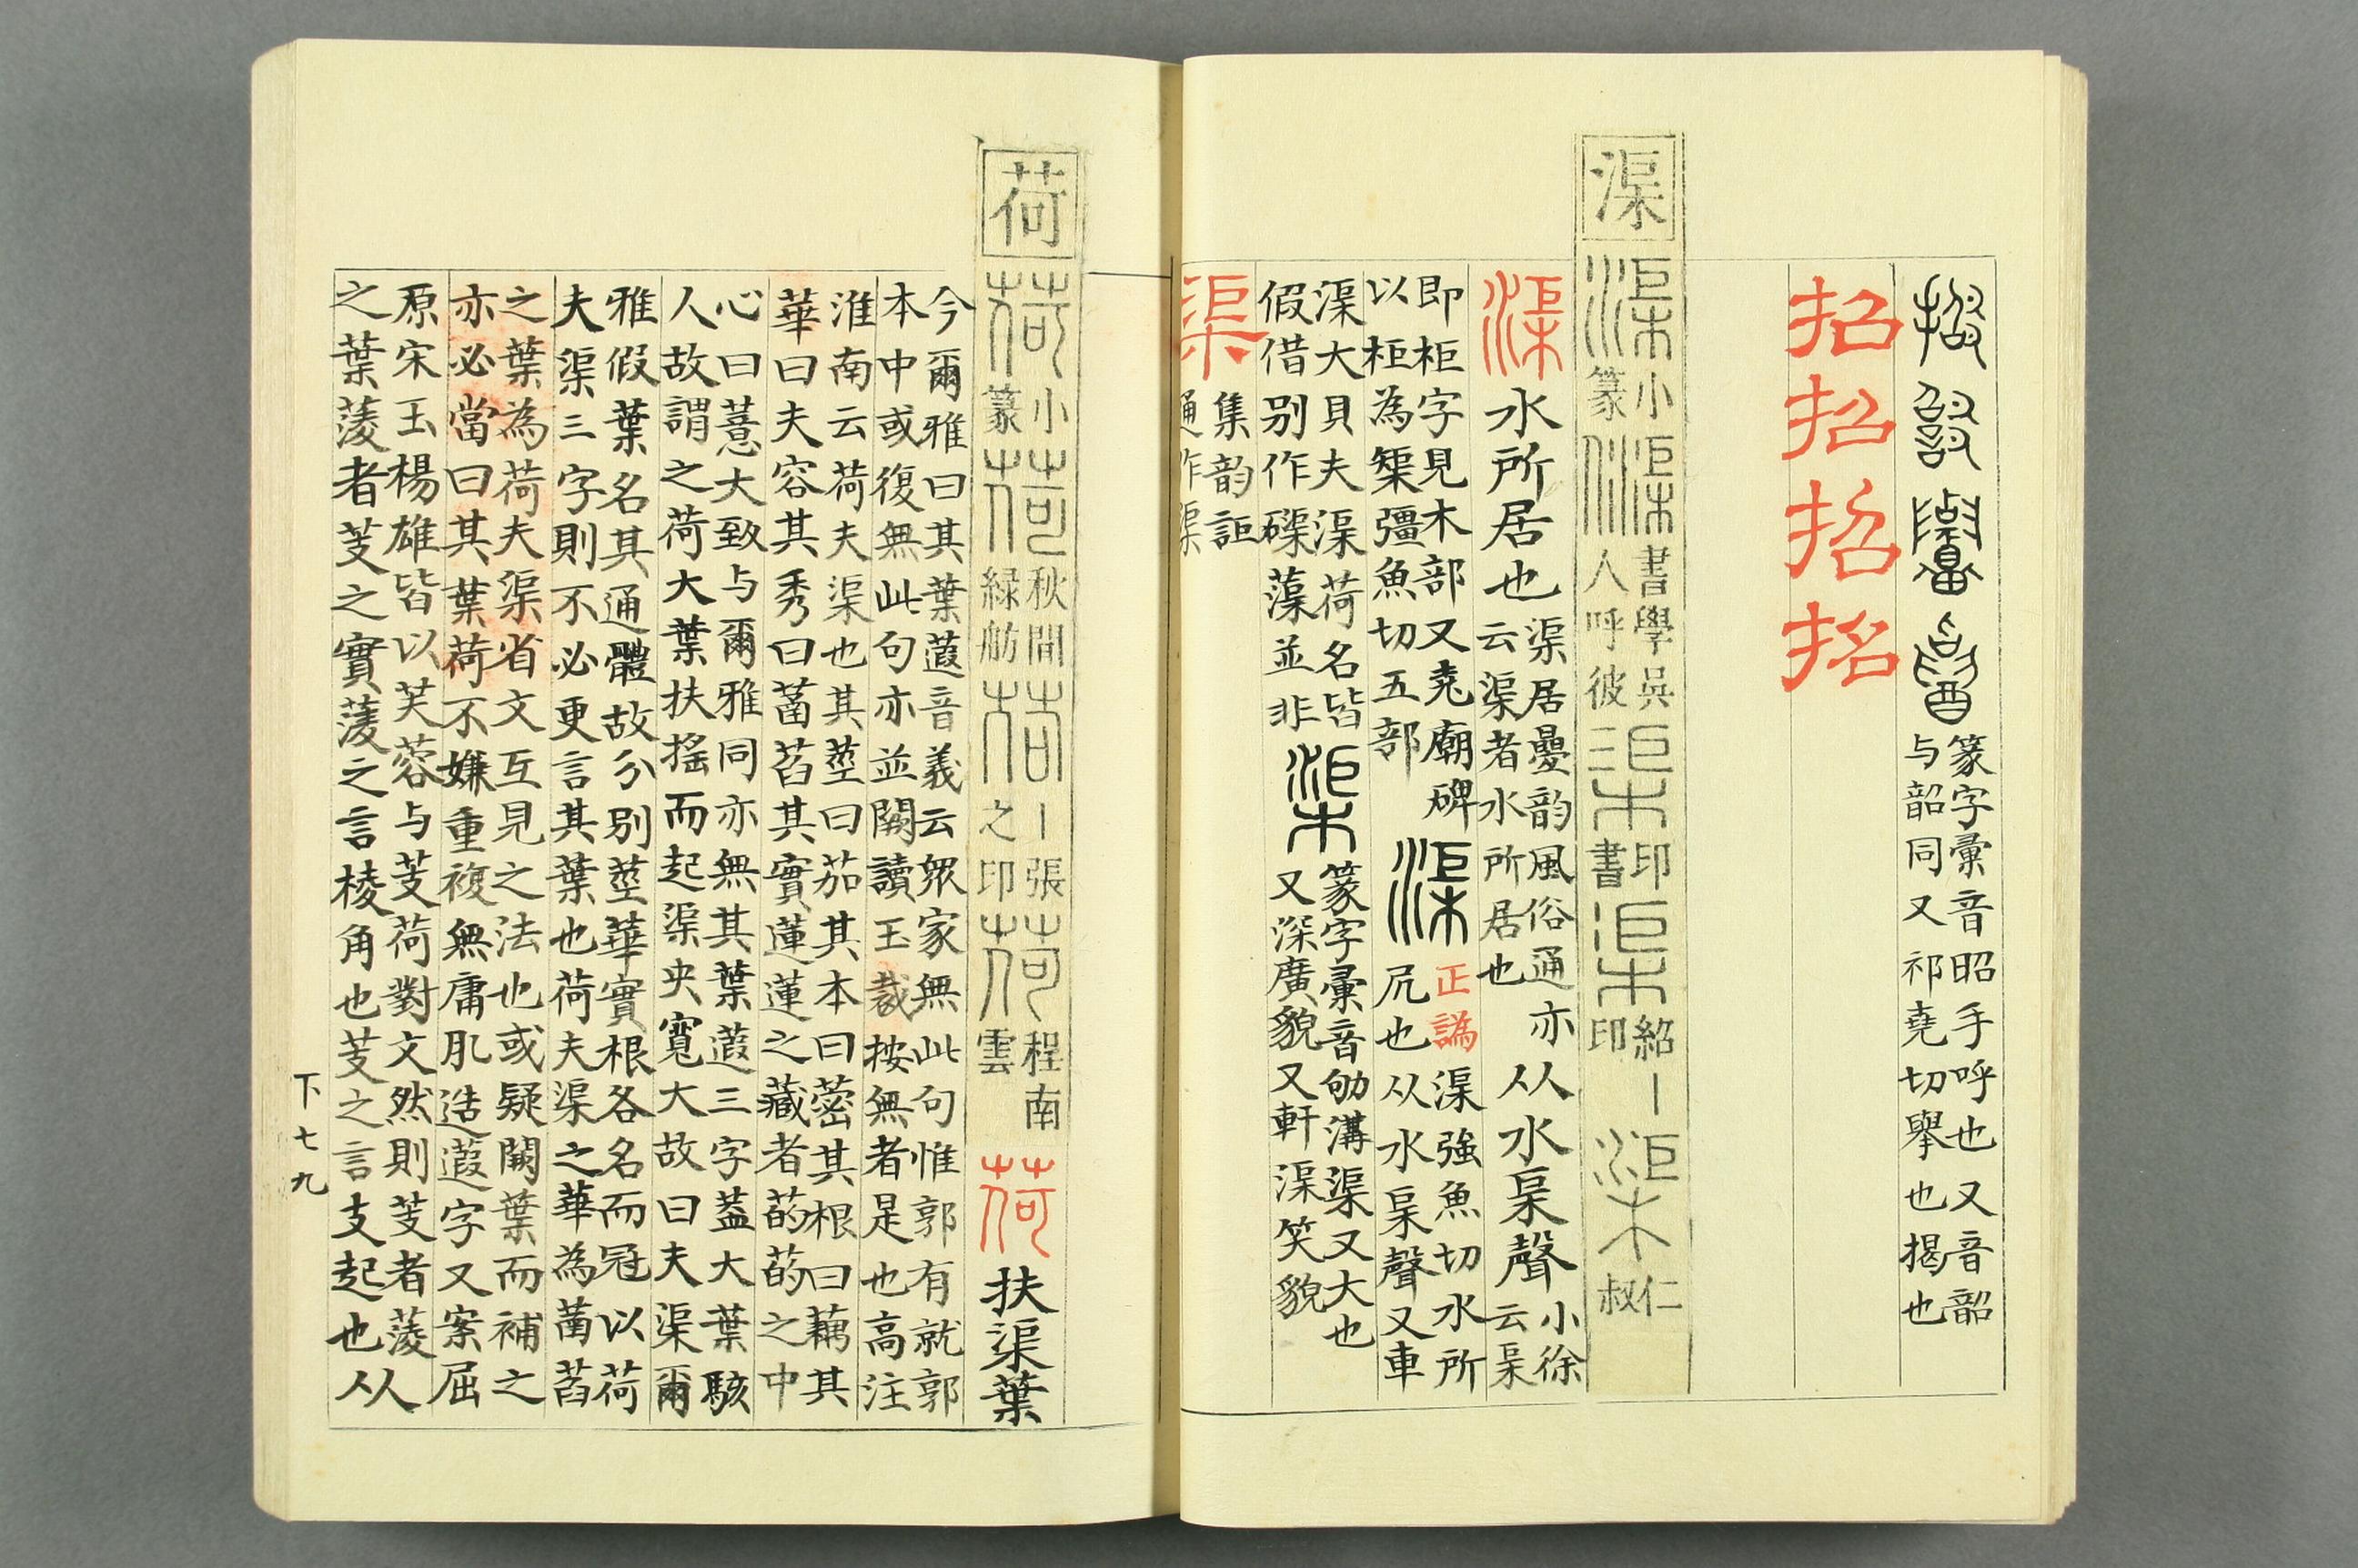 篆字彙音昭手呼也又音韶
与韶同又祁堯切舉也揭也
招招招招
渠
小篆
書學吳人呼彼
印書
紹丨印
仁叔
渠水所居也
渠居曡韵風俗通亦
云渠者水所居也
从水㮂聲
小徐
云㮂
即柜字見木部又堯廟碑
以柜為榘彊魚切五部
正譌
渠強魚切水所
凥也从水㮂聲又車
渠大貝夫渠荷名皆
假借别作磲蕖並非
篆字彙音劬溝渠又大也
又深廣貌又軒渠笑貌
渠
集韵詎
通作渠
荷
小篆
秋間緑舫
丨之印
張
程南雲
荷扶渠葉
今爾雅曰其葉蕸音義云衆家無此句惟郭有就郭
本中或復無此句亦並闕讀玉裁按無者是也高注
淮南云荷夫渠也其莖曰茄其本曰蔤其根曰藕其
華曰夫容其秀曰菡萏其實蓮蓮之藏者菂菂之中
心曰薏大致与爾雅同亦無其葉蕸三字葢大葉駭
人故謂之荷大葉扶搖而起渠央寬大故曰夫渠爾
雅假葉名其通體故分别莖華實根各名而冠以荷
夫渠三字則不必更言其葉也荷夫渠之華為菡萏
之葉為荷夫渠省文互見之法也或疑闕葉而補之
亦必當曰其葉荷不嫌重複無庸肊造蕸字又案屈
原宋玉楊雄皆以芙蓉与芰荷對文然則芰者薐从
之葉薐者芰之實薐之言棱角也芰之言支起也从
下七九